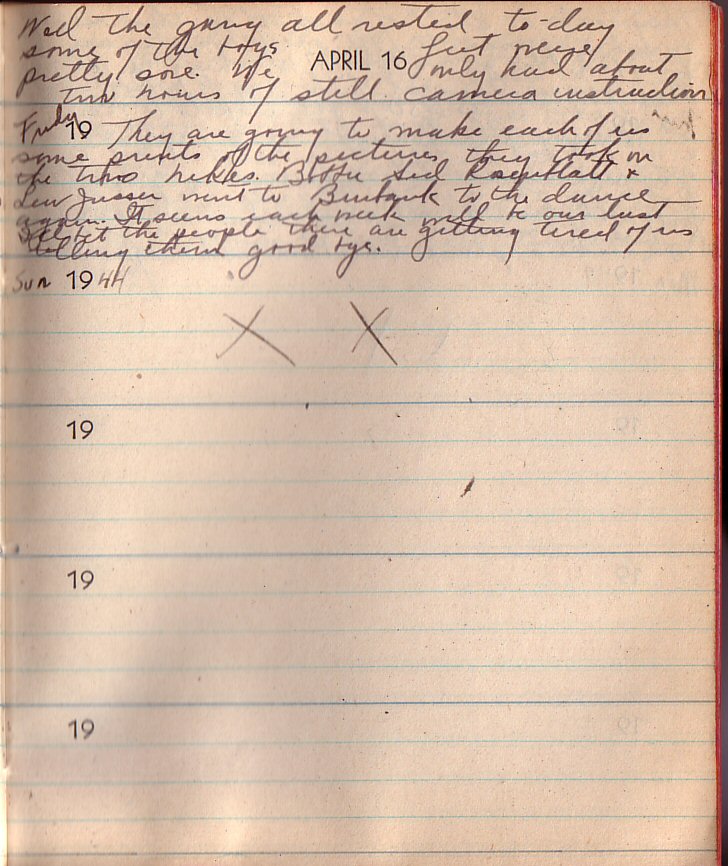 Well the gang all rested to-day
some of the boys feet were
APRIL 16
pretty sore. We only had about
two hours of still camera instruction
Friday
19 They are going to make each of us
some prints of the pictures they took on
the two hikes. Sid Rosenblatt &
Lew went to Burbank to the dance
again. It seems each week will be our last
the people there are getting tired of us
telling them good bye.
Sun 1944
X X
19
19
19